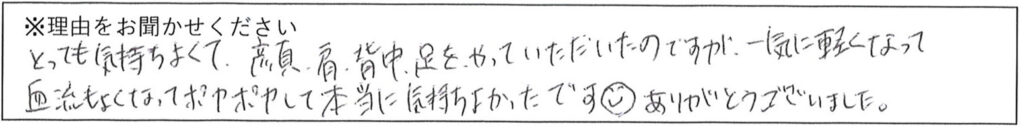 ※理由をお聞かせください
とっても気持ちよくて、顔、肩、背中、足を、やっていただいたのですが、一気に軽くなって
血流もよくなってポカポカして本当に気持ちよかったです☺ありがとうございました。